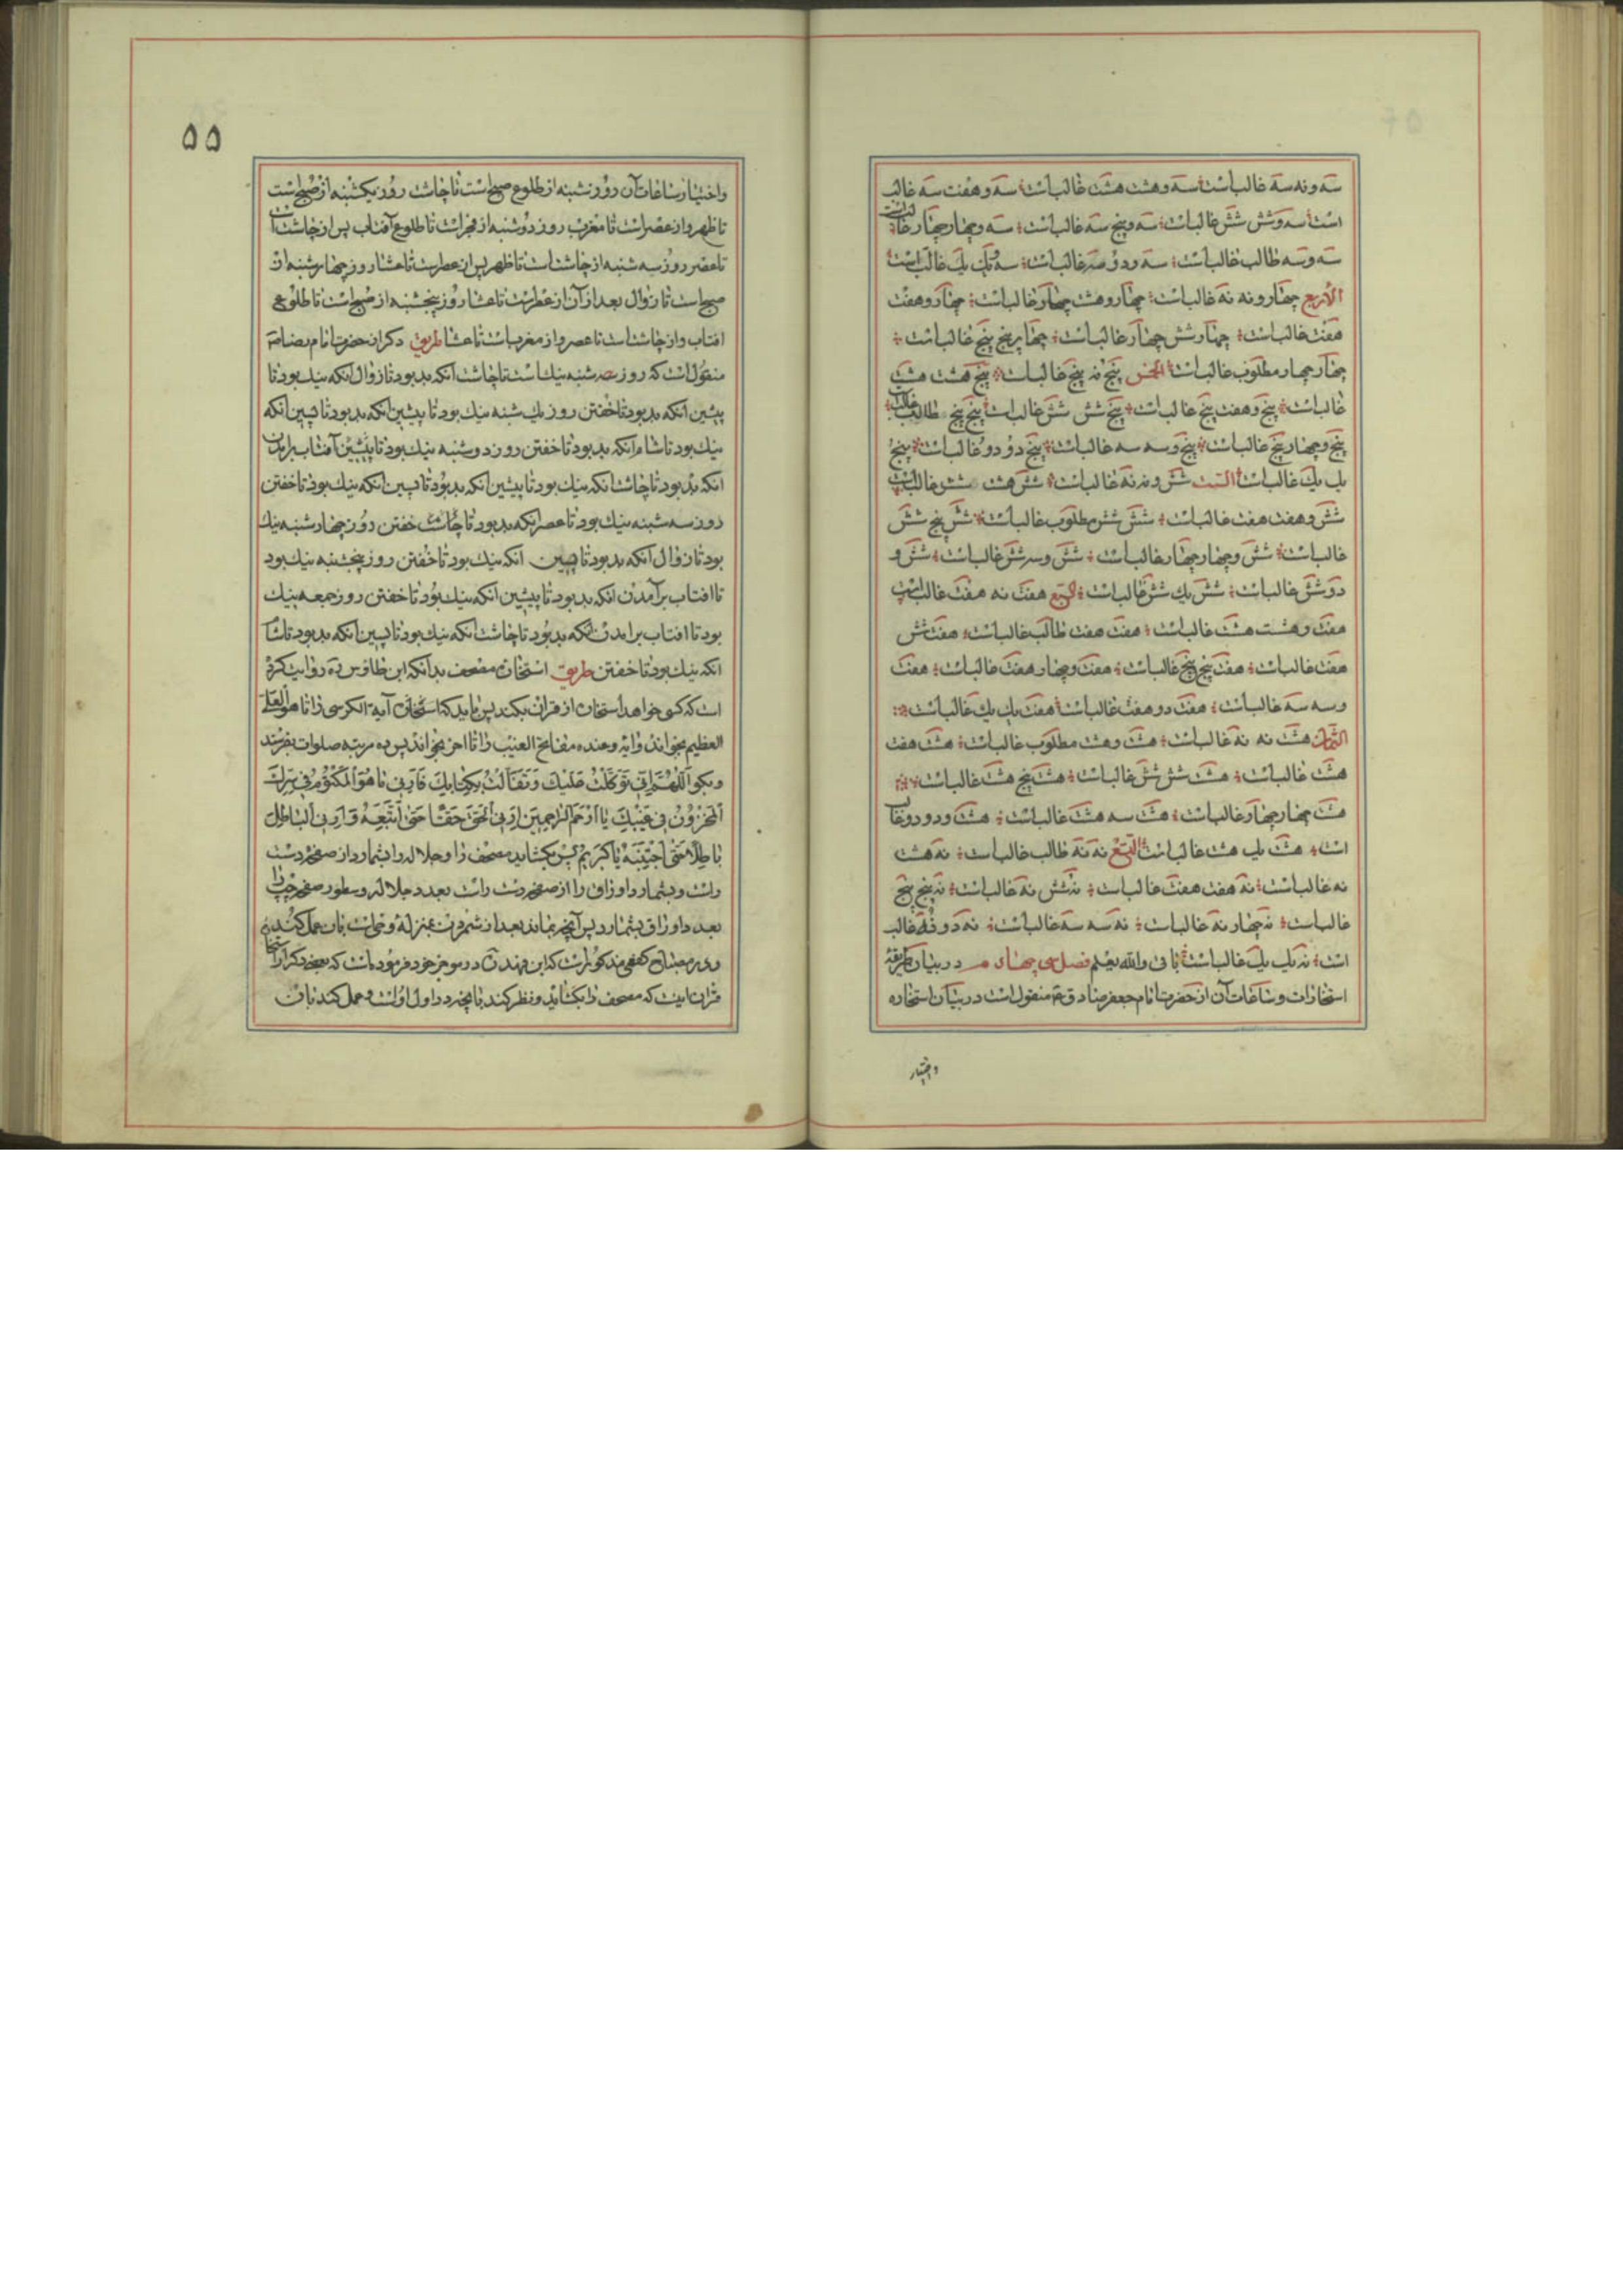 سه و نه سه غالب است سه و هشت هشت غالب است سه و هفت سه غالب
است سه و شش شش غالب است سه و پنج سه غالب است سه و چهار چهار غالب است
سه و سه طالب غالب است سه و دو سه غالب است سه و یک یک غالب است
الأربع چهار و نه نه غالب است چهار و هشت چهار غالب است چهار و هفت
هفت غالب است چهار شش چهار غالب است چهار پنج پنج غالب است
چهار چهار مطلوب غالب است الخمس پنج نه پنج غالب است پنج هشت هشت
غالب است پنج و هفت پنج غالب است پنج شش شش غالب است پنج پنج طالب غالب
پنج و چهار پنج غالب است پنج و سه سه غالب است پنج دو دو غالب است پنج
یک یک غالب است الست شش و نه نه غالب است شش هشت شش غالب است
شش و هفت هفت غالب است شش شش مطلوب غالب است شش پنج شش
غالب است شش و چهار چهار غالب است شش و سه شش غالب است شش و
دو شش غالب است شش یک شش غالب است السبع هفت نه هفت غالب است
هفت و هشت هشت غالب است هفت هفت طالب غالب است هفت شش
هفت غالب است هفت پنج پنج غالب است هفت و چهار هفت غالب است هفت
و سه سه غالب است هفت دو هفت غالب است هفت یک یک غالب است
الثمان هشت نه نه غالب است هشت و هشت مطلوب غالب است هشت هفت
هشت غالب است هشت شش شش غالب است هشت پنج هشت غالب است
هشت چهار چهار غالب است هشت سه هشت غالب است هشت و دو دو غالب
است هشت یک هشت غالب است التسع نه نه طالب غالب است نه هشت
نه غالب است نه هفت هفت غالب است نه شش نه غالب است نه پنج پنج
غالب است نه چهار نه غالب است نه سه سه غالب است نه دو نه غالب
است نه یک یک غالب است باقی والله یعلم فصل سی چهارم در بیان طریقه
استخارات و ساعات آن از حضرت امام جعفر صادق ع منقول است در بیان استخاره
و اختیار
۵۵
و اختیار ساعات آن در روز شنبه از طلوع صبح است تا چاشت روز یکشنبه از صبح است
تا ظهر و از عصر است تا مغرب روز دوشنبه از فجر است تا طلوع آفتاب پس از چاشت است
تا عصر روز سه شنبه از چاشت است تا ظهر پس از عصر است تا عشا روز چهارشنبه از
صبح است تا زوال بعد از آن از عصر است تا عشا روز پنجشنبه از صبح است تا طلوع
افتاب و از چاشت است تا عصر و از مغرب است تا عشا طریق دکر از حضرت امام رضا
منقول است که روز شنبه نیک است تا چاشت آنکه بد بود تا زوال آنکه نیک بود تا
پیشین آنکه بد بود تا خفتن روز یک شنبه نیک بود تا پیشین آنکه بد بود تا پسین آنکه
نیک بود تا شام آنکه بد بود تا خفتن روز دوشنبه نیک بود تا پیشین آفتاب برآمدن
آنکه بد بود تا چاشت آنکه نیک بود تا پیشین آنکه بد بود تا پسین آنکه نیک بود تا خفتن
روز سه شنبه نیک بود تا عصر آنکه بد بود تا چاشت خفتن روز چهارشنبه نیک
بود تا زوال آنکه بد بود تا پسین آنکه نیک بود تا خفتن روز پنجشنبه نیک بود
تا افتاب برآمدن آنکه بد بود تا پیشین آنکه نیک بود تا خفتن روز جمعه نیک
بود تا افتاب برامدن آنکه بد بود تا چاشت آنکه نیک بود تا پسین آنکه بد بود تا شام
آنکه نیک بود تا خفتن طریق استخاره مصحف بدانکه ابن طاوس ره روایت کرده
است که کسی خواهد استخاره از قران بکند پس باید که آیة الکرسی را تا هو العلی
العظیم بخواند و آیه و عنده مفاتح الغیب را تا اخر بخواند پس ده مرتبه صلوات بفرستد
و بگو اللهم انی توکلت علیک و تفألت بکتابک فارنی ما هو المکتوم فی سرک
المخزون فی غیبک یا ارحم الراحمین ارنی الحق حقا حتی اتبعه و ارنی الباطل
باطلا حتی اجتنبه یا کریم پس بکشاید مصحف را و جلاله را بشمارد از صفحه دست
راست و بشمارد اوراق را از صفحه دست راست بعدد جلاله و سطور صفحه چپ را
بعدد اوراق بشمارد پس آنچه بماند بعد از شمردن بمنزله وحی است بان عمل کند
و در مصباح کفعمی مذکور است که ابن فهد در موجز خود فرموده است که بعضی دکر از استخاره
قران اینست که مصحف را بکشاید و نظر کند بانچه در اول اوست و عمل کند بان